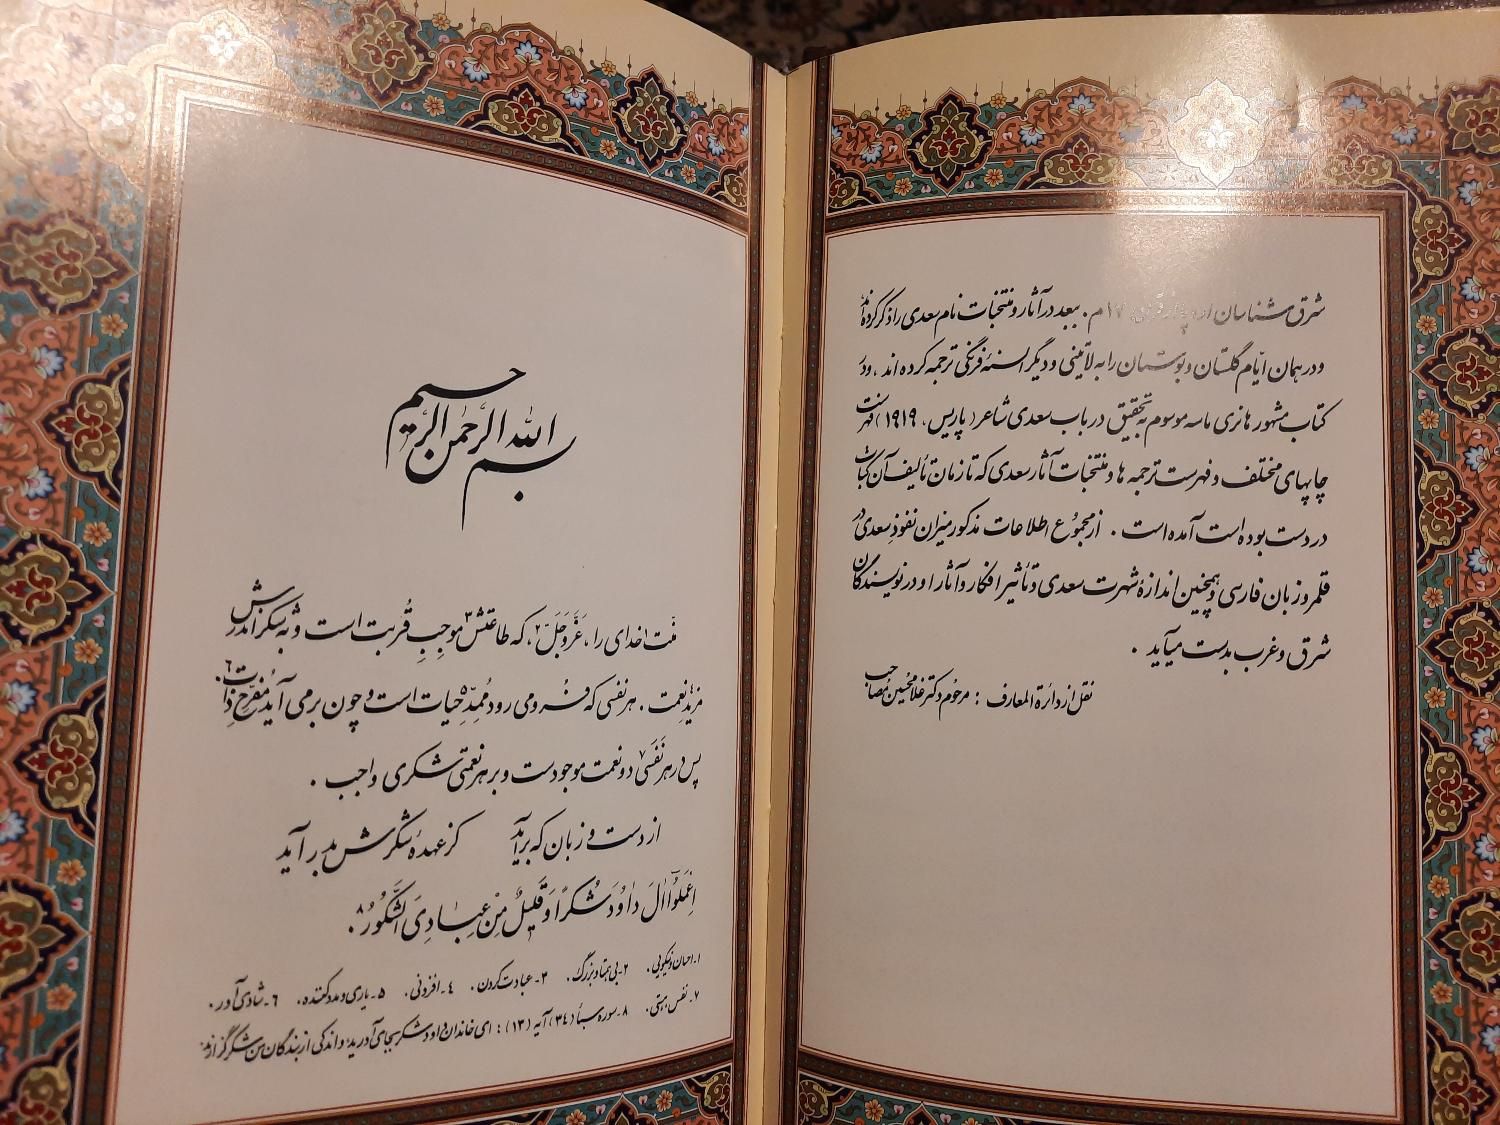 شرق‌شناسان اروپا از قرن ۱۷م. ببعد در آثار و منتخبات نام سعدی را ذکر کرده‌اند
و در همان ایّام گلستان و بوستان را به لاتینی و دیگر السنهٔ فرنگی ترجمه کرده‌اند، و در
کتاب مشهور هانری ماسه موسوم به تحقیق در باب سعدی شاعر (پاریس، ۱۹۱۹) فهرست
چاپهای مختلف و فهرست ترجمه‌ها و منتخبات آثار سعدی که تا زمان تألیف آن کتاب
در دست بوده است آمده است. از مجموع اطلاعات مذکور میزان نفوذِ سعدی در
قلمرو زبان فارسی و همچنین اندازهٔ شهرت سعدی و تأثیر افکار و آثار او در نویسندگان
شرق و غرب بدست میآید.
نقل از دائرة المعارف : مرحوم دکتر غلامحسین مُصاحب
بسم الله الرّحمن الرّحیم
منّت۱ خدای را، عَزَّ وَ جَلَّ۲، که طاعتش۳ موجبِ قُربت است و به شکر اندرش
مزید۴ نعمت. هر نفسی که فرو می رود مُمِدِّ۵ حیات است و چون بر می آید مُفرّحِ ذات۶.
پس در هر نَفَسی۷ دو نعمت موجودست و بر هر نعمتی شکری واجب.
از دست و زبان که برآید کز عهدهٔ شکرش بدر آید
اِعْمَلُوٓا اٰلَ دٰاوُدَ شُکْرًا وَ قَلیلٌ مِنْ عِبٰادِیَ الشَّکُورُ۸.
۱- احسان و نیکویی. ۲- بی همتا و بزرگ. ۳- عبادت کردن. ۴- افزونی. ۵- یاری و مدد کننده. ۶- شادی آور.
۷- نفس هستی. ۸- سوره سبأ (۳۴) آیه (۱۳) : ای خاندان داود شکر بجای آورید و اندکی از بندگان من شکرگزارند.